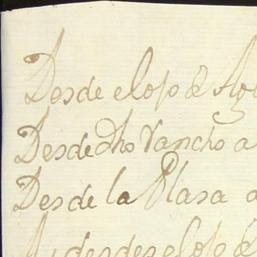 Desde el ojo de
Desde dho rancho a
Desde la Plasa a
desde el ojo de